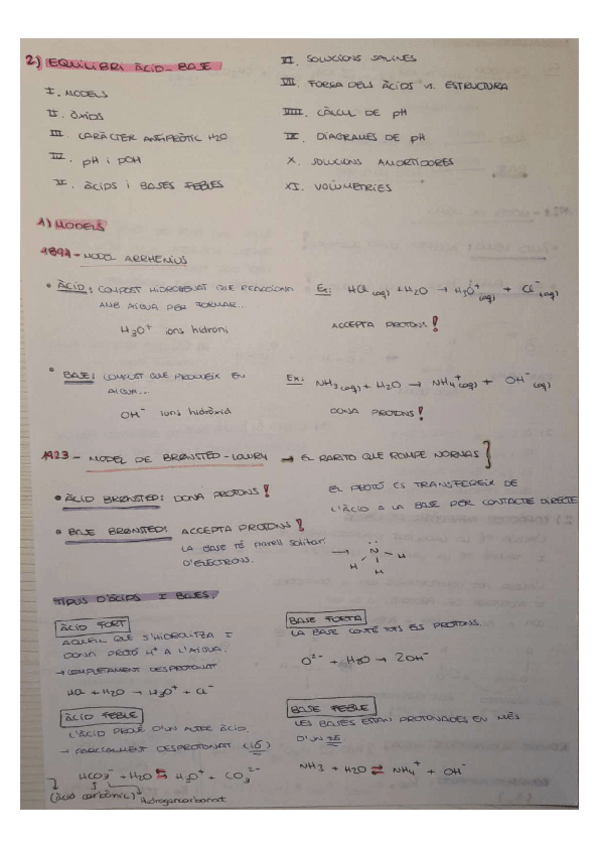 2) EQUILIBRI ÀCID-BASE
I. MODELS
II. ÒXIDS
III. CARÀCTER ANFIPRÒTIC H2O
IV. pH i pOH
V. ÀCIDS i BASES FEBLES
VI. SOLUCIONS SALINES
VII. FORSA DELS ÀCIDS vs. ESTRUCTURA
VIII. CÀLCUL DE pH
IX. DIAGRAMES DE pH
X. SOLUCIONS AMORTIDORES
XI. VOLUMETRIES
1) MODELS
1894 - MODEL ARRHENIUS
• ÀCID: COMPOST HIDROGENAT QUE REACCIONA
AMB AIGUA PER FORMAR...
H3O+ ions hidròni
Ex: HCl(aq) + H2O → H3O+(aq) + Cl-(aq)
ACCEPTA PROTONS!
• BASE: COMPOST QUE PRODUEIX EN
AIGUA...
OH- ions hidròxid
Ex: NH3(aq) + H2O → NH4+(aq) + OH-(aq)
DONA PROTONS!
1923 - MODEL DE BRØNSTED-LOWRY → EL RARITO QUE ROMPE NORMAS}
• ÀCID BRØNSTED: DONA PROTONS!
EL PROTÓ ES TRANSFEREIX DE
L'ÀCID A LA BASE PER CONTACTE DIRECTE
• BASE BRØNSTED: ACCEPTA PROTONS!
LA BASE TÉ parell solitari
D'ELECTRONS.
→ N H H H
TIPUS D'ÀCIDS I BASES.
ÀCID FORT
AQUELL QUE S'HIDROLITZA I
DONA PROTÓ H+ A L'AIGUA.
→ COMPLETAMENT DESPROTONAT
HCl + H2O → H3O+ + Cl-
BASE FORTA
LA BASE CONTÉ TOTS ELS PROTONS...
O2- + H2O → 2OH-
ÀCID FEBLE
L'ÀCID PROVÉ D'UN ALTRE ÀCID.
→ PARCIALMENT DESPROTONAT
HCO3- + H2O ⇄ H3O+ + CO3 2-
(àcid carbònic) Hidrogencarbonat
BASE FEBLE
LES BASES ESTAN PROTONADES EN MÉS
D'UN
NH3 + H2O ⇄ NH4+ + OH-